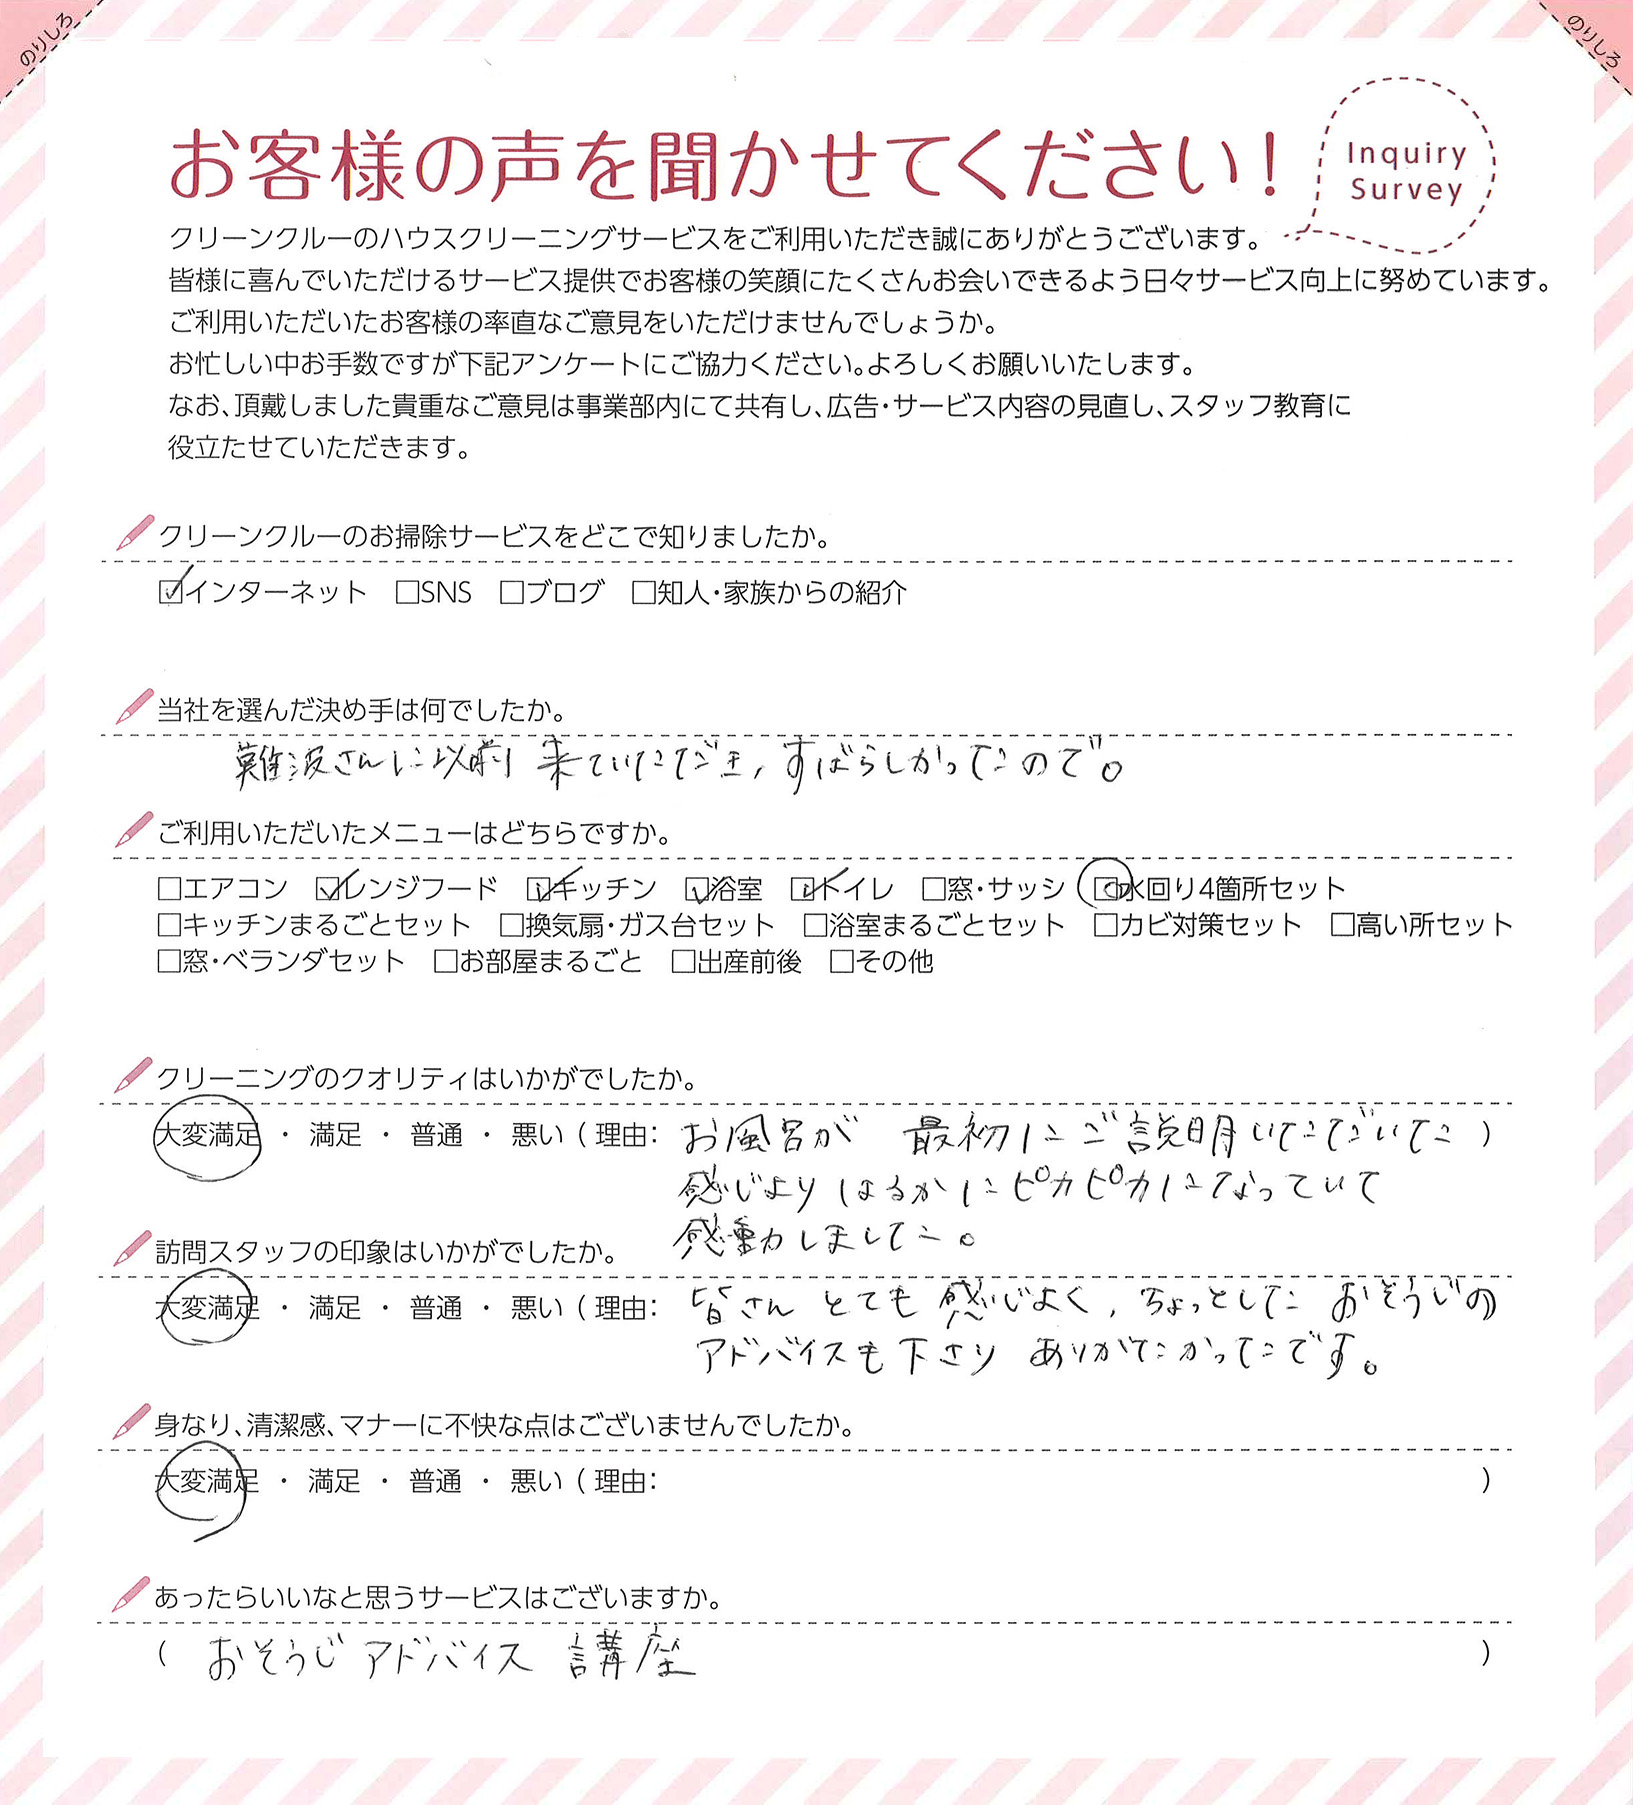 のりしろ
のりしろ
お客様の声を聞かせてください！
Inquiry
Survey
クリーンクルーのハウスクリーニングサービスをご利用いただき誠にありがとうございます。
皆様に喜んでいただけるサービス提供でお客様の笑顔にたくさんお会いできるよう日々サービス向上に努めています。
ご利用いただいたお客様の率直なご意見をいただけませんでしょうか。
お忙しい中お手数ですが下記アンケートにご協力ください。よろしくお願いいたします。
なお、頂戴しました貴重なご意見は事業部内にて共有し、広告・サービス内容の見直し、スタッフ教育に
役立たせていただきます。
クリーンクルーのお掃除サービスをどこで知りましたか。
☑インターネット □SNS □ブログ □知人・家族からの紹介
当社を選んだ決め手は何でしたか。
難波さんに以前来ていただき、すばらしかったので。
ご利用いただいたメニューはどちらですか。
□エアコン ☑レンジフード ☑キッチン ☑浴室 ☑トイレ □窓・サッシ □水回り4箇所セット
□キッチンまるごとセット □換気扇・ガス台セット □浴室まるごとセット □カビ対策セット □高い所セット
□窓・ベランダセット □お部屋まるごと □出産前後 □その他
クリーニングのクオリティはいかがでしたか。
大変満足 ・ 満足 ・ 普通 ・ 悪い ( 理由: お風呂が 最初にご説明いただいた )
感じよりはるかにピカピカになっていて
感動しました。
訪問スタッフの印象はいかがでしたか。
大変満足 ・ 満足 ・ 普通 ・ 悪い ( 理由: 皆さん とても 感じよく、ちょっとした おそうじの )
アドバイスも下さり ありがたかったです。
身なり、清潔感、マナーに不快な点はございませんでしたか。
大変満足 ・ 満足 ・ 普通 ・ 悪い ( 理由: )
あったらいいなと思うサービスはございますか。
( おそうじアドバイス 講座 )